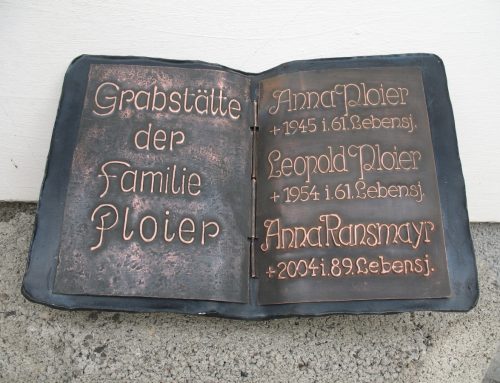 Grabstätte
der
Familie
Ploier
Anna Ploier
+ 1945 i. 61. Lebensj.
Leopold Ploier
+ 1954 i. 61. Lebensj.
Anna Ransmayr
+ 2004 i. 89. Lebensj.